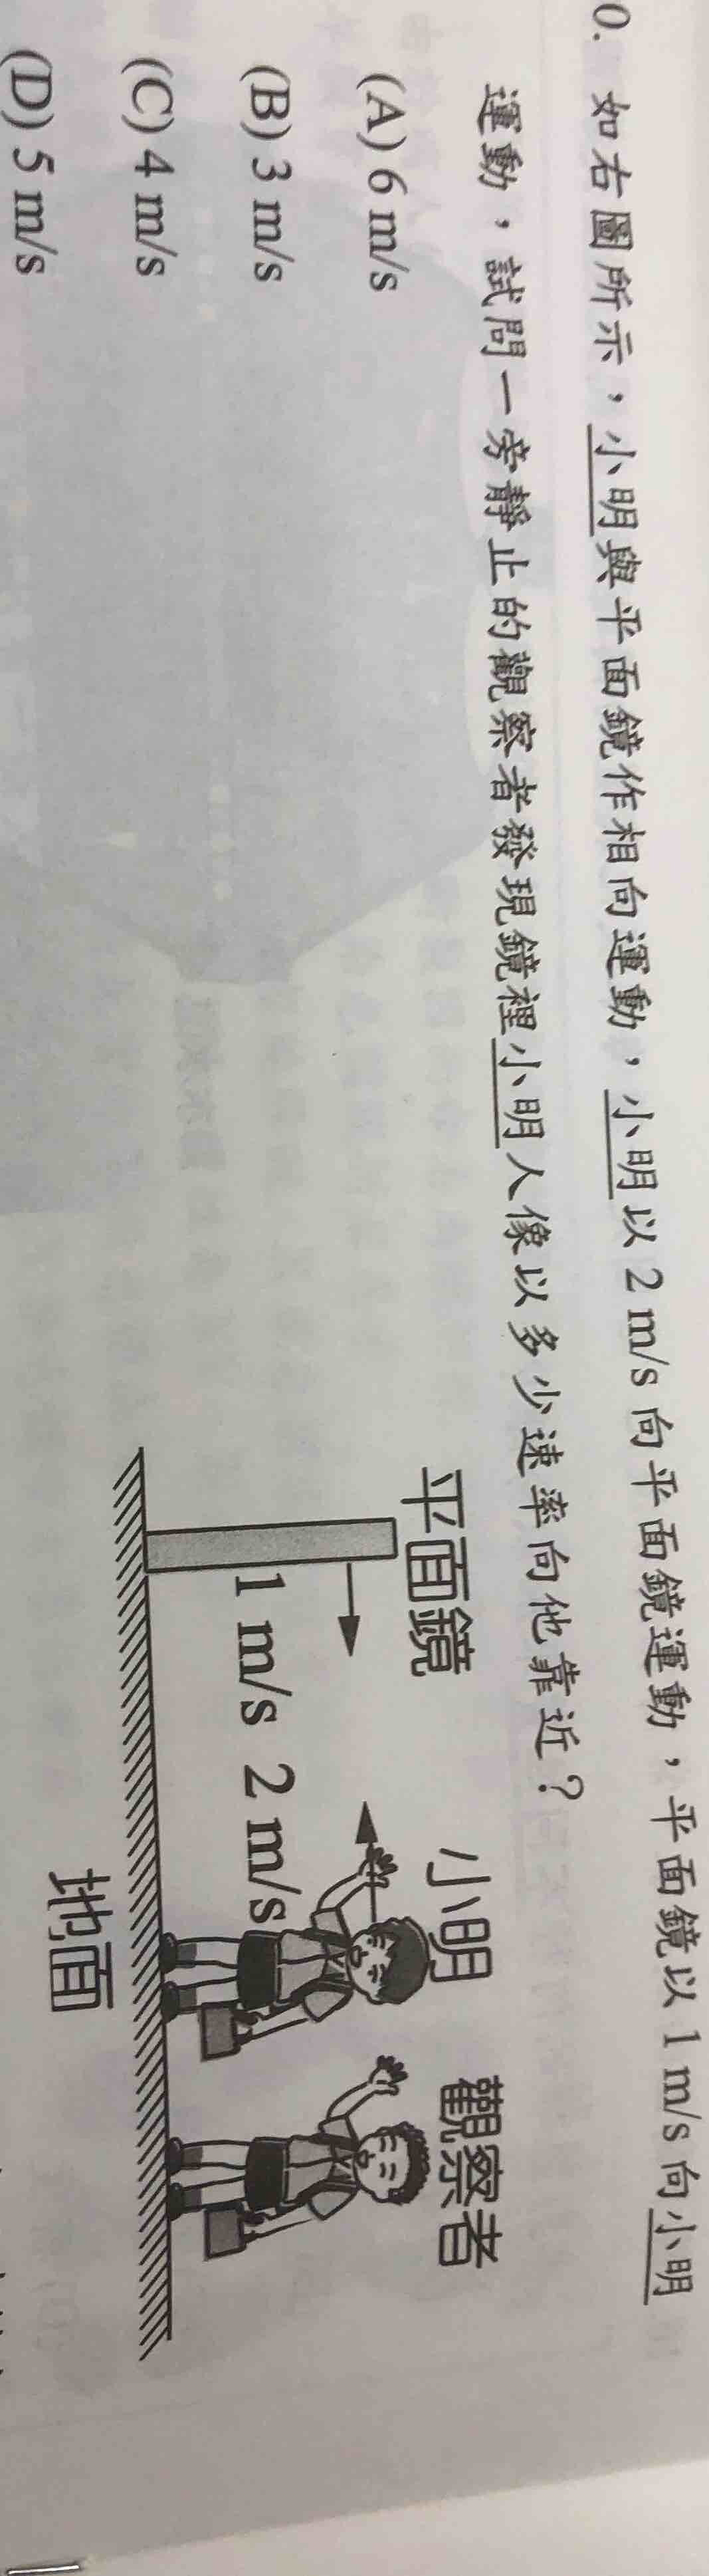 0. 如右圖所示，小明與平面鏡作相向運動，小明以 2 m/s 向平面鏡運動，平面鏡以 1 m/s 向小明
運動，試問一旁靜止的觀察者發現鏡裡小明人像以多少速率向他靠近？
(A) 6 m/s
(B) 3 m/s
(C) 4 m/s
(D) 5 m/s
平面鏡
小明
觀察者
1 m/s 2 m/s
地面